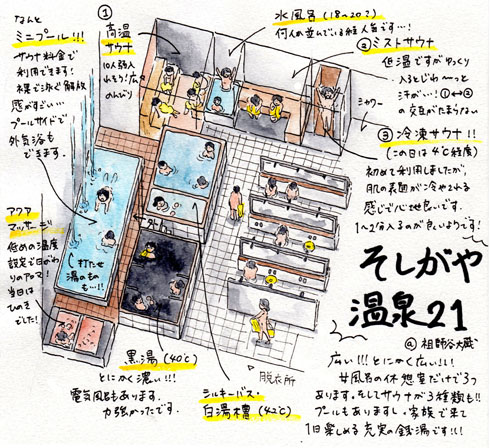 なんと
ミニプール!!!
サウナ料金で
利用できます!
裸で泳ぐ解放
感がすごい…
プールサイドで
外気浴も
できます。
①
高温
サウナ
10人強入
れそう!広く
のんびり
水風呂(18〜20?)
何人か並んでいる超人気です…!
②ミストサウナ
低温ですがゆっくり
入るとじわ〜っと
汗が…!①↔②
の交互がたまらない
シャワー
③冷凍サウナ!!
(この日は4℃程度)
初めて利用しましたが、
肌の表面が冷やされる
感じで心地良いです。
1〜2分入るのが良いようです!
アクア
マッサージ
低めの温度
設定で日がわ
りのアロマ!
当日は
ひのき
でした!
打たせ
湯のも
の…!!
黒湯(40℃)
とにかく濃い!!!
電気風呂もあります。
力強かったです。
シルキーバス・
白湯槽(42℃)
脱衣所
そしがや
温泉21
@祖師谷大蔵
広い!!!とにかく広い!!
女風呂の休憩室だけで3つ
あります。そしてサウナが3種類も!!
プールもありますし。家族で来て
1日楽しめる充実の銭湯です!!!